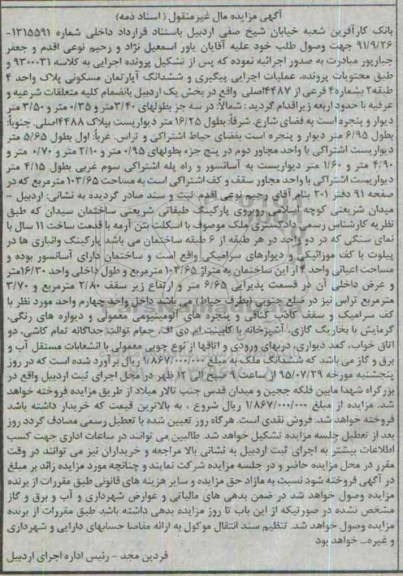 آگهی مزایده مال غیرمنقول ( اسناد ذمه)
بانک کارآفرین شعبه خیابان شیخ صفی اردبیل باستناد قرارداد داخلی شماره ۱۳۱۵۵۹۱-
۹۱/۹/۲۶ جهت وصول طلب خود علیه آقایان یاور اسمعیل نژاد و رحیم نوعی اقدم و جعفر
جبارپور مبادرت به صدور اجرائیه نموده که پس از تشکیل پرونده اجرایی به کلاسه ۹۳۰۰۰۳۱ و
طبق محتویات پرونده، عملیات اجرایی پیگیری و ششدانگ آپارتمان مسکونی پلاک واحد ۴
طبقه۲ بشماره۴ فرعی از ۴۴۸۷اصلی واقع در بخش یک اردبیل بانضمام کلیه متعلقات شرعیه و
عرفیه با حدود اربعه زیراقدام گردید : شمالاً: در سه جز بطولهای ۳/۴۰متر و ۰/۳۵متر و ۳/۵۰ متر
دیوار و پنجره است به فضای شارع. شرقاً: بطول ۱۶/۲۵ متر دیواریست بپلاک ۴۴۸۸اصلی. جنوباً:
بطول ۶/۹۵ متر دیوار و پنجره است بفضای حیاط اشتراکی و تراس. غرباً: اول بطول ۵/۶۵ متر
دیواریست اشتراکی با واحد مجاور دوم در پنج جزء بطولهای ۰/۹۵ متر و ۲/۱۰ متر و ۰/۷۰ متر و
۴/۹۰ متر و ۱/۶۰ متر دیواریست به آسانسور و راه پله اشتراکی سوم غربی بطول ۴/۱۵ متر
دیواریست اشتراکی با واحد مجاور سقف و کف اشتراکی است به مساحت ۱۰۳/۶۵ مترمربع که در
صفحه ۹۱ دفتر ۲۰۱ بنام آقای رحیم نوعی اقدم ثبت و سند صادر گردیده به نشانی: اردبیل -
میدان شریعتی کوچه اسلامی روبروی پارکینگ طبقاتی شریعتی ساختمان سیدان که طبق
نظریه کارشناس رسمی دادگستری ملک موصوف با اسکلت بتن آرمه با قدمت ساخت ۱۱ سال با
نمای سنگی که در دو واحد در هر طبقه از ۶ طبقه ساختمان می باشد پارکینگ وانباری ها در
پیلوت با کف موزائیک و دیوارهای سرامیکی واقع است و ساختمان دارای آسانسور بوده و
مساحت اعیانی واحد ۴ از این ساختمان به متراژ ۱۰۳/۶۵ مترمربع و طول داخلی واحد ۱۶/۳۰متر
و عرض داخلی آن در قسمت پذیرایی ۶/۶۵ متر و ارتفاع زیر سقف ۲/۸۰ مترمربع و ۳/۷۰
مترمربع تراس نیز در ضلع جنوبی (بطرف حیاط) می باشد داخل واحد چهارم واحد مورد نظر با
کف سرامیک و سقف کاذب کنافی و پنجره های آلومینیومی معمولی و دیواره های رنگی،
گرمایش با بخاری گازی، آشپزخانه با کابینت ام دی اف، حمام توالت جداگانه تمام کاشی، دو
اتاق خواب، کمد دیواری، دربهای ورودی و اتاقها از نوع چوبی معمولی با انشعابات مستقل آب و
برق و گاز می باشد که ششدانگ ملک به مبلغ ۱/۸۶۷/۰۰۰/۰۰۰ ریال برآورد شده است که در روز
پنجشنبه مورخه ۹۵/۰۷/۲۹ از ساعت ۹ صبح الی ۱۲ ظهر در محل اجرای ثبت اردبیل واقع در
بزرگراه شهدا مابین فلکه ججین و میدان قدس جنب تالار میلاد از طریق مزایده فروخته خواهد
شد. مزایده از مبلغ ۱/۸۶۷/۰۰۰/۰۰۰ ریال شروع ، به بالاترین قیمت که خریدار داشته باشد
فروخته خواهد شد. فروش نقدی است. هرگاه روز تعیین شده با تعطیل رسمی مصادف گردد روز
بعد از تعطیل جلسه مزایده تشکیل خواهد شد. طالبین می توانند در ساعات اداری جهت کسب
اطلاعات بیشتر به اجرای ثبت اردبیل به نشانی بالا مراجعه و خریداران نیز می توانند در وقت
مقرر در محل مزایده حاضر و در جلسه مزایده شرکت نمایند و چنانچه مورد مزایده زائد بر مبلغ
در آگهی فروخته شود نسبت به مازاد حق مزایده و سایر هزینه های قانونی طبق مقررات از برنده
مزایده وصول خواهد شد در ضمن بدهی های مالیاتی و عوارض شهرداری و آب و برق و گاز
مشخص نشده در صورتیکه از این باب تا روز مزایده بدهی داشته باشد طبق مقررات از برنده
مزایده وصول خواهد شد. تنظیم سند انتقال موکول به ارائه مفاصا حسابهای دارایی و شهرداری
و غیره... خواهد بود
فردین مجد - رئیس اداره اجرای اردبیل